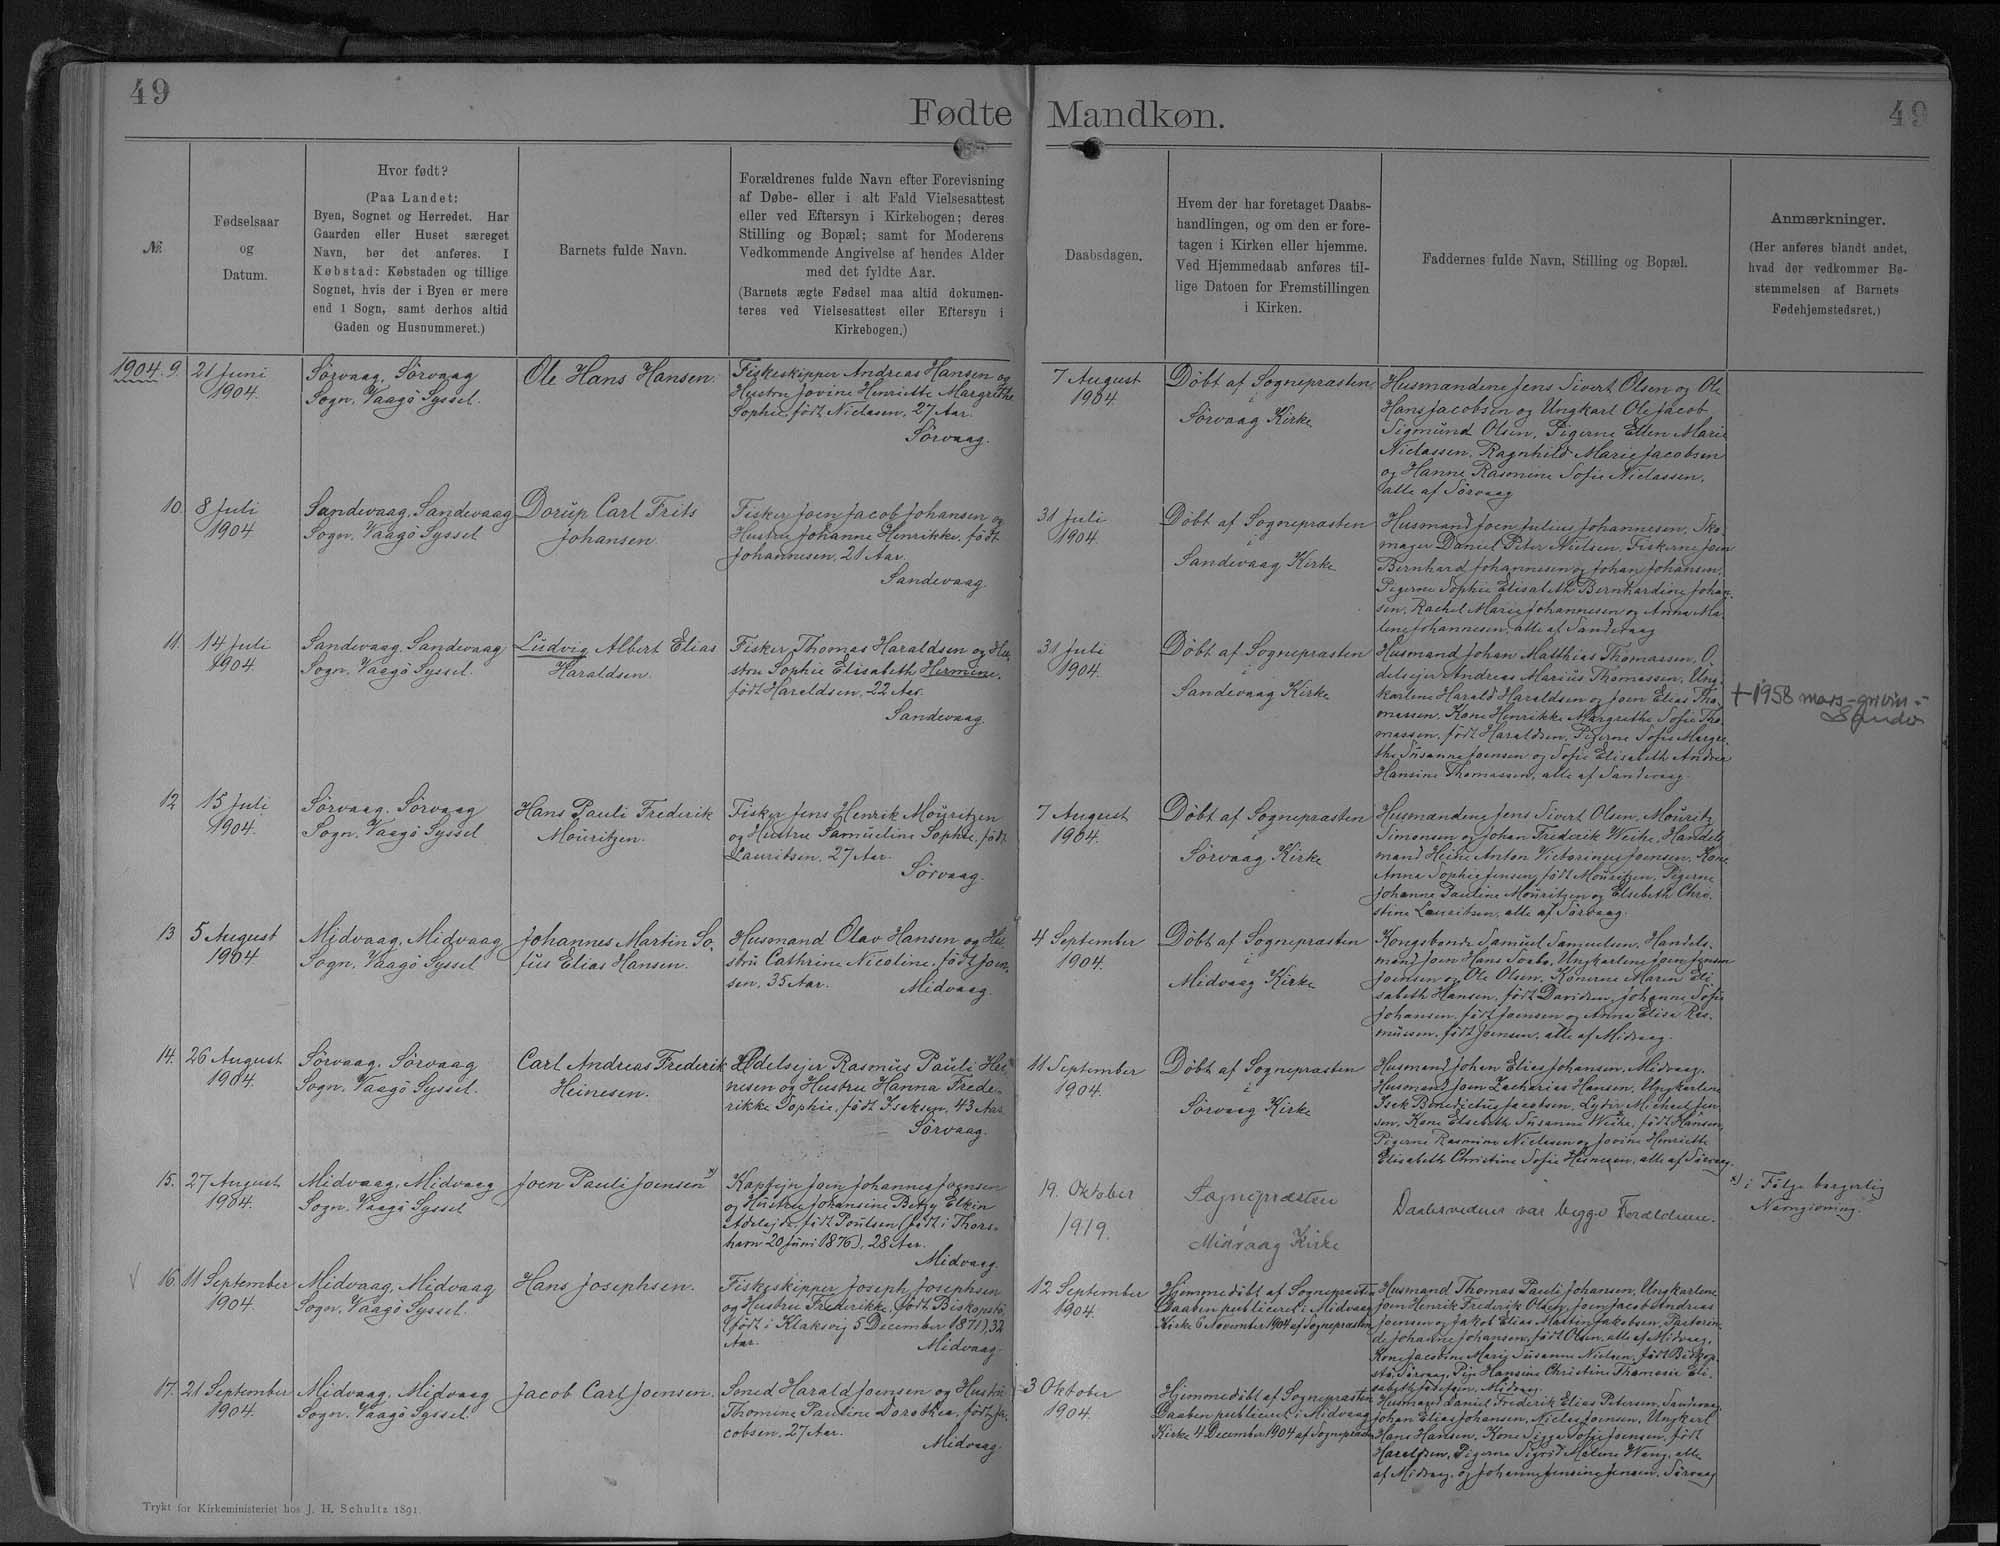 49
Fødte Mandkøn.
49
№
Fødselsaar
og
Datum.
Hvor født?
(Paa Landet:
Byen, Sognet og Herredet. Har
Gaarden eller Huset særeget
Navn, bør det anføres. I
Købstad: Købstaden og tillige
Sognet, hvis der i Byen er mere
end 1 Sogn, samt derhos altid
Gaden og Husnummeret.)
Barnets fulde Navn.
Forældrenes fulde Navn efter Forevisning
af Døbe- eller i alt Fald Vielsesattest
eller ved Eftersyn i Kirkebogen; deres
Stilling og Bopæl; samt for Moderens
Vedkommende Angivelse af hendes Alder
med det fyldte Aar.
(Barnets ægte Fødsel maa altid dokumen-
teres ved Vielsesattest eller Eftersyn i
Kirkebogen.)
Daabsdagen.
Hvem der har foretaget Daabs-
handlingen, og om den er fore-
tagen i Kirken eller hjemme.
Ved Hjemmedaab anføres til-
lige Datoen for Fremstillingen
i Kirken.
Faddernes fulde Navn, Stilling og Bopæl.
Anmærkninger.
(Her anføres blandt andet,
hvad der vedkommer Be-
stemmelsen af Barnets
Fødehjemstedsret.)
1904. 9.
21 Juni
1904.
Sörvaag, Sörvaag
Sogn, Vaagö Syssel.
Ole Hans Hansen.
Fiskeskipper Andreas Hansen og
Hustru Jovine Henriette Margrethe
Sophie, født Niclasen, 27 Aar.
Sörvaag.
7 August
1904.
Döbt af Sognepræsten
i
Sörvaag Kirke
Husmændene Jens Sivert Olsen og Ole
Hans Jacobsen og Ungkarl Ole Jacob
Sigmund Olsen, Pigerne Ellen Marie
Niclassen, Ragnhild Marie Jacobsen
og Hanne Rasmine Sofie Niclassen,
alle af Sörvaag
10.
8 Juli
1904.
Sandevaag, Sandevaag
Sogn, Vaagö Syssel
Dorup Carl Frits
Johansen.
Fisker Joen Jacob Johansen og
Hustru Johanne Henrikke, født
Johannesen, 21 Aar.
Sandevaag.
31 Juli
1904.
Döbt af Sognepræsten
i
Sandevaag Kirke
Husmand Joen Julius Johannesen, Sko
mager Daniel Peter Nielsen, Fiskerne Joen
Bernhard Johannesen og Johan Johansen,
Pigerne Sophie Elisabeth Bernhardine Johan-
sen, Rachel Marie Johannesen og Anna Ma-
lene Johannesen, alle af Sandevaag
11.
14 Juli
1904.
Sandevaag, Sandevaag
Sogn, Vaagö Syssel.
Ludvig Albert Elias
Haraldsen.
Fisker Thomas Haraldsen og Hu-
stru Sophie Elisabeth Hermine,
født Haraldsen, 22 Aar.
Sandevaag.
31 Juli
1904.
Döbt af Sognepræsten
i
Sandevaag Kirke
Husmand Johan Matthias Thomassen, O-
delsejer Andreas Marius Thomassen, Ung-
karlene Harald Haraldsen og Joen Elias Tho-
massen, Kone Henrikke Margrethe Sofie Tho-
massen, født Haraldsen, Pigerne Sofie Margre-
the Susanne Joensen og Sofie Elisabeth Andrea
Hansine Thomassen, alle af Sandevaag.
+ 1958 mars
12
15 Juli
1904.
Sörvaag, Sörvaag
Sogn, Vaagö Syssel
Hans Pauli Frederik
Mouritzen.
Fisker Jens Henrik Mouritzen
og Hustru Samueline Sophie, født
Lauritsen, 27 Aar.
Sörvaag.
7 August
1904.
Döbt af Sognepræsten
i
Sörvaag Kirke
Husmændene Jens Sivert Olsen, Mouritz
Simonsen og Johan Frederik Weihe, Handels
mand Heine Anton Victorinus Joensen, Kone
Anna Sophie Jensen, født Mouritzen, Pigerne
Johanne Pauline Mouritzen og Elsebeth Chri-
stine Lauritsen, alle af Sörvaag.
13
5 August
1904
Midvaag, Midvaag
Sogn, Vaagö Syssel
Johannes Martin So-
fus Elias Hansen.
Husmand Olav Hansen og Hu-
stru Cathrine Nicoline, født Joen-
sen, 35 Aar.
Midvaag.
4 September
1904.
Döbt af Sognepræsten
i
Midvaag Kirke
Kongsbonde Samuel Samuelsen, Handels-
mand Joen Hans Svabo, Ungkarlene Joen Jensen
Joensen og Ole Olsen, Konerne Maren Eli
sabeth Hansen, født Davidsen, Johanne Sofie
Johansen, født Joensen og Anna Elisa Ras-
mussen, født Joensen, alle af Midvaag.
14.
26 August
1904.
Sörvaag, Sörvaag
Sogn, Vaagö Syssel.
Carl Andreas Frederik
Heinesen.
Odelsejer Rasmus Pauli Hei-
nesen og Hustru Hanna Frede-
rikke Sophie, født Isaksen, 43 Aar
Sörvaag.
11 September
1904.
Döbt af Sognepræsten
i
Sörvaag Kirke
Husmand Johan Elias Johansen, Midvaag.
Husmand Joen Zacharias Hansen, Ungkarlene
Isak Benedictus Jacobsen, Lydir Michael Jen
sen, Kone Elsebeth Susanne Weihe, født Hansen,
Pigerne Rasmine Niclasen og Jovine Henriette
Elisabeth Christine Sofie Heinesen, alle af Sörvaag.
15.
27 August
1904.
Midvaag, Midvaag
Sogn, Vaagö Syssel
Joen Pauli Joensen x)
Kaptejn Joen Johannes Joensen
og Hustru Johansine Betzy Elkin
Adelejde, født Poulsen (født i Thors-
havn 20 Juni 1876), 28 Aar.
Midvaag.
19. Oktober
1919.
Sognepræsten
i
Midvaag Kirke
Daabsvidner var begge Forældrene.
x) i Følge borgerlig
Navngivning.
16.
11 September
1904.
Midvaag, Midvaag
Sogn, Vaagö Syssel.
Hans Josephsen.
Fiskeskipper Joseph Josephsen
og Hustru Frederikke, født Biskopstö
(født i Klaksvig 5 December 1871), 32
Aar.
Midvaag.
12 September
1904.
Hjemmedöbt af Sognepræsten
Daaben publiceret i Midvaag
Kirke 6 November 1904 af Sognepræsten
Husmand Thomas Pauli Johansen, Ungkarlene
Joen Henrik Frederik Olsen, Joen Jacob Andreas
Joensen og Jakob Elias Martin Jakobsen,
Johanne Johansen, født Olsen, alle af Midvaag,
Kone Jacobine Marie Susanne Nielsen, født Biskop-
stö, Sörvaag, Pige Hansine Christine Thomasie Eli-
sabeth Midvaag.
17.
21 September
1904.
Midvaag, Midvaag
Sogn, Vaagö Syssel.
Jacob Carl Joensen.
Smed Harald Joensen og Hustru
Thomine Pauline Dorothea, født Ja-
cobsen, 27 Aar.
Midvaag.
3 Oktober
1904.
Hjemmedöbt af Sognepræsten
Daaben publiceret i Midvaag
Kirke 4 December 1904 af Sognepræsten
Husmand Daniel Frederik Elias Petersen, Sandevaag,
Johan Elias Johansen, Niclas Joensen, Ungkarl
Hans Hansen, Kone Sigga Sofie Joensen, født
Haraldsen, Pigerne Sigrid Malene Wang, alle
af Midvaag, og Johanne Jensine Jensen, Sörvaag
Trykt for Kirkeministeriet hos J. H. Schultz 1891.